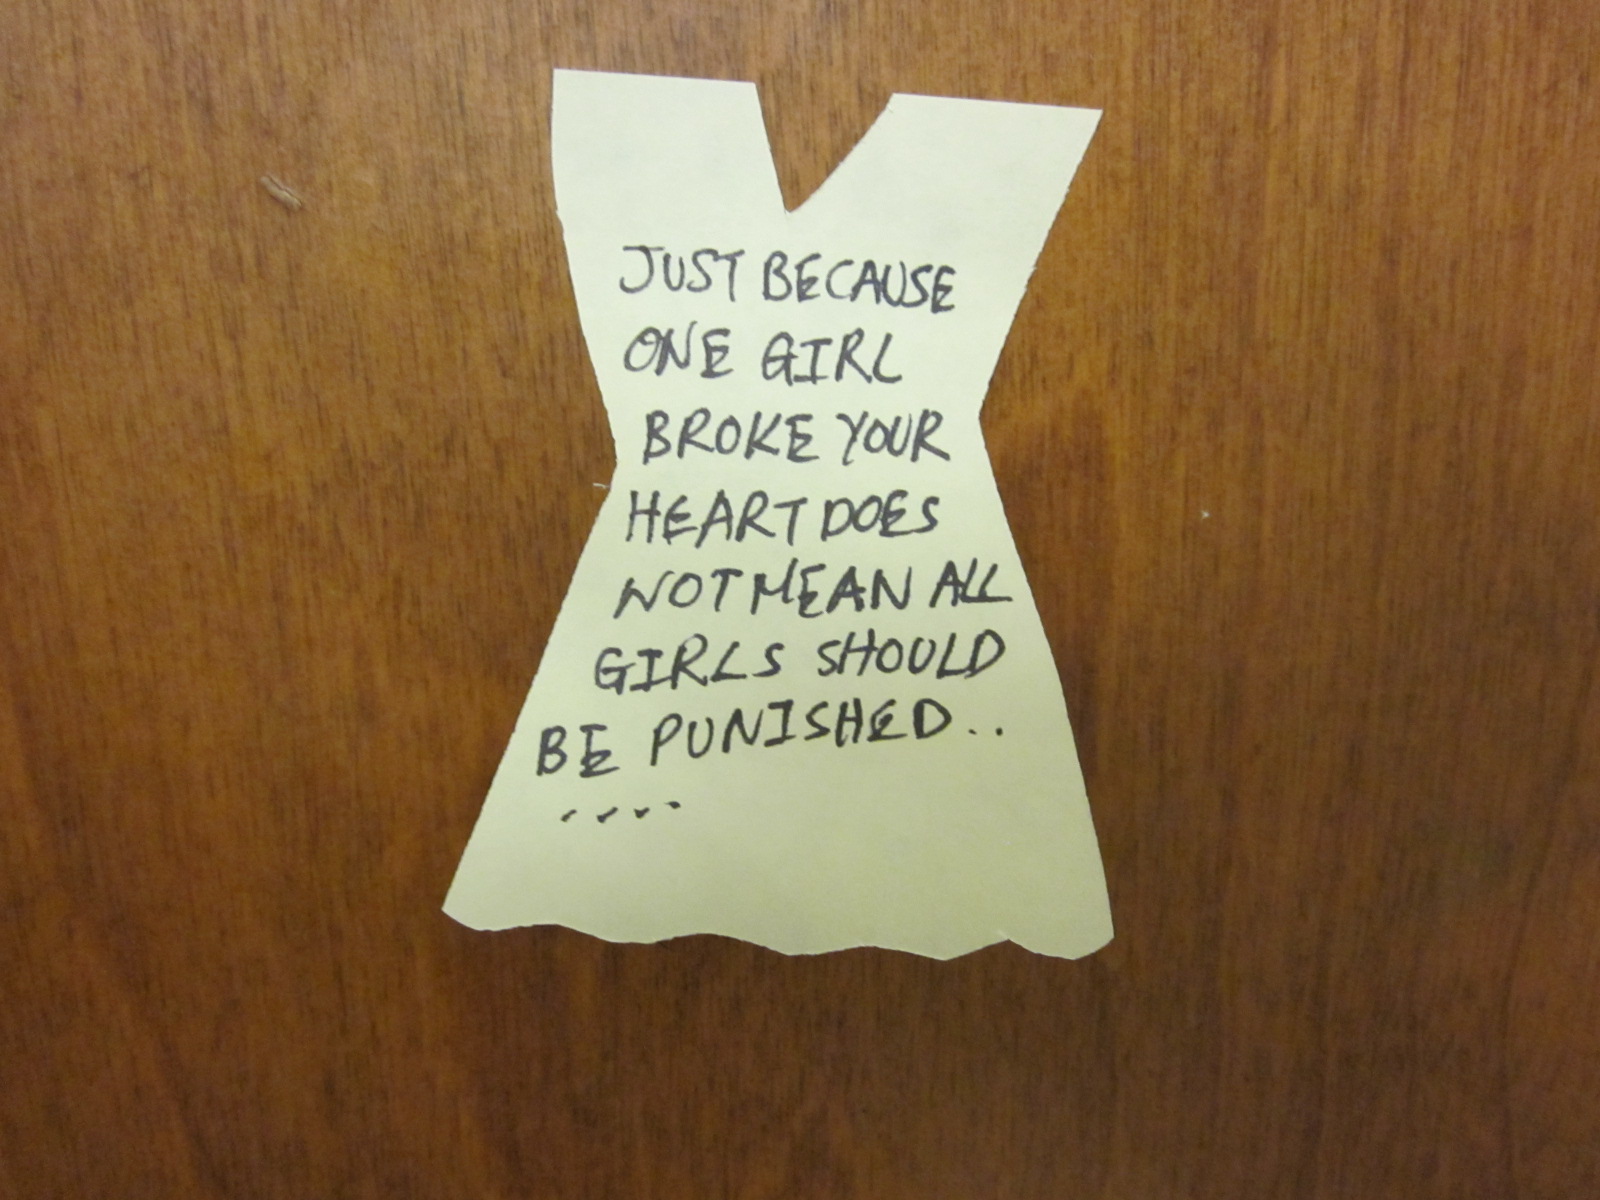 JUST BECAUSE
ONE GIRL
BROKE YOUR
HEART DOES
NOT MEAN ALL
GIRLS SHOULD
BE PUNISHED..
....